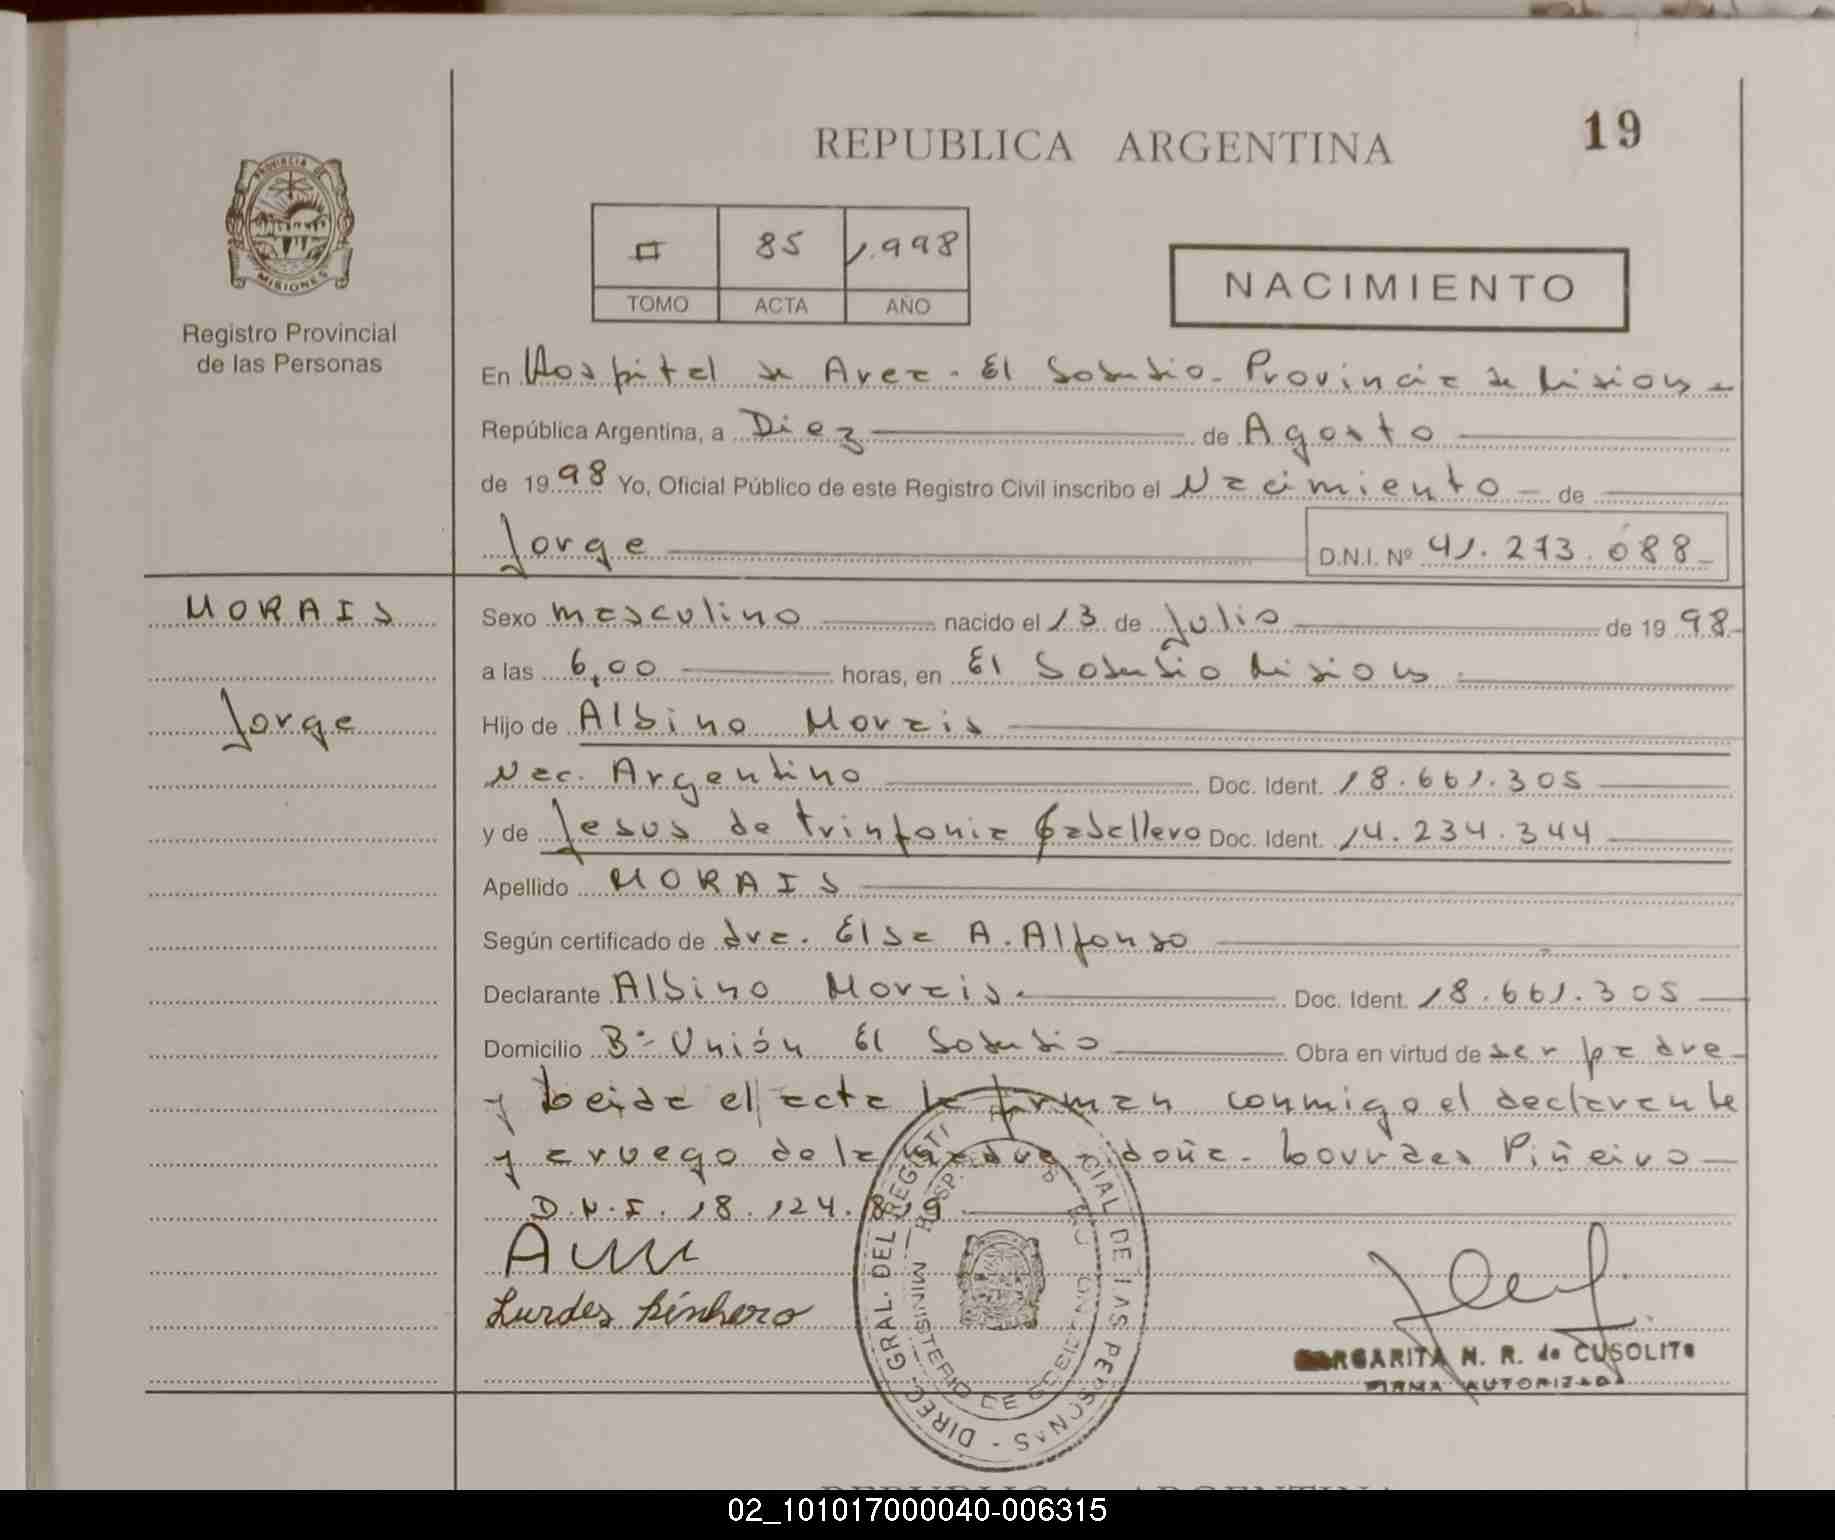 REPUBLICA ARGENTINA
19
PROVINCIA DE
MISIONES
Registro Provincial
de las Personas
85 1.998
TOMO ACTA AÑO
NACIMIENTO
En Hospital de Area - El Soberbio - Provincia de Misiones -
República Argentina, a Diez de Agosto
de 1998 Yo, Oficial Público de este Registro Civil inscribo el Nacimiento - de
Jorge
D.N.I. Nº 41.273.088-
MORAIS
Jorge
Sexo masculino nacido el 13 de Julio de 1998-
a las 6,00 horas, en El Soberbio Misiones
Hijo de Albino Morais
Nac. Argentino Doc. Ident. 18.661.305
y de Jesus de trinfonia Caballero Doc. Ident. 14.234.344
Apellido MORAIS
Según certificado de dra. Elsa A. Alfonso
Declarante Albino Morais. Doc. Ident. 18.661.305
Domicilio Bº Unión El Soberbio Obra en virtud de ser padre -
y Leida el acta la firman conmigo el declarante
y a ruego de la madre doña - Lourdes Piñeiro -
D.N.I. 18.124.819
Lurdes Pinhero
DIREC. GRAL. DEL REGISTRO CIAL DE LAS PERSONAS -
MINISTERIO DE GOBIERNO
MARGARITA N. R. de CUSOLITO
FIRMA AUTORIZADA
REPUBLICA ARGENTINA
02_101017000040-006315